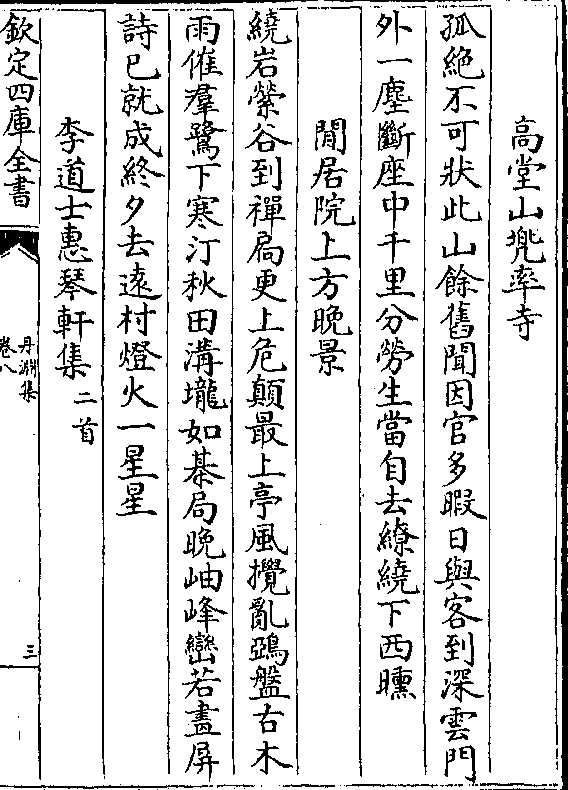 高堂山兠率寺
孤絶不可狀此山餘舊聞因官多暇日與客到深雲門
外一塵斷座中千里分勞生當自去繚繞下西曛
閒居院上方晚景
繞岩縈谷到禪扄更上危顛最上亭風攪亂鵶盤古木
雨催羣鷺下寒汀秋田溝壠如棊局晚岫峰巒若畫屏
詩已就成終夕去遠村燈火一星星
李道士惠琴軒集二首
欽定四庫全書
丹淵集
卷八
三